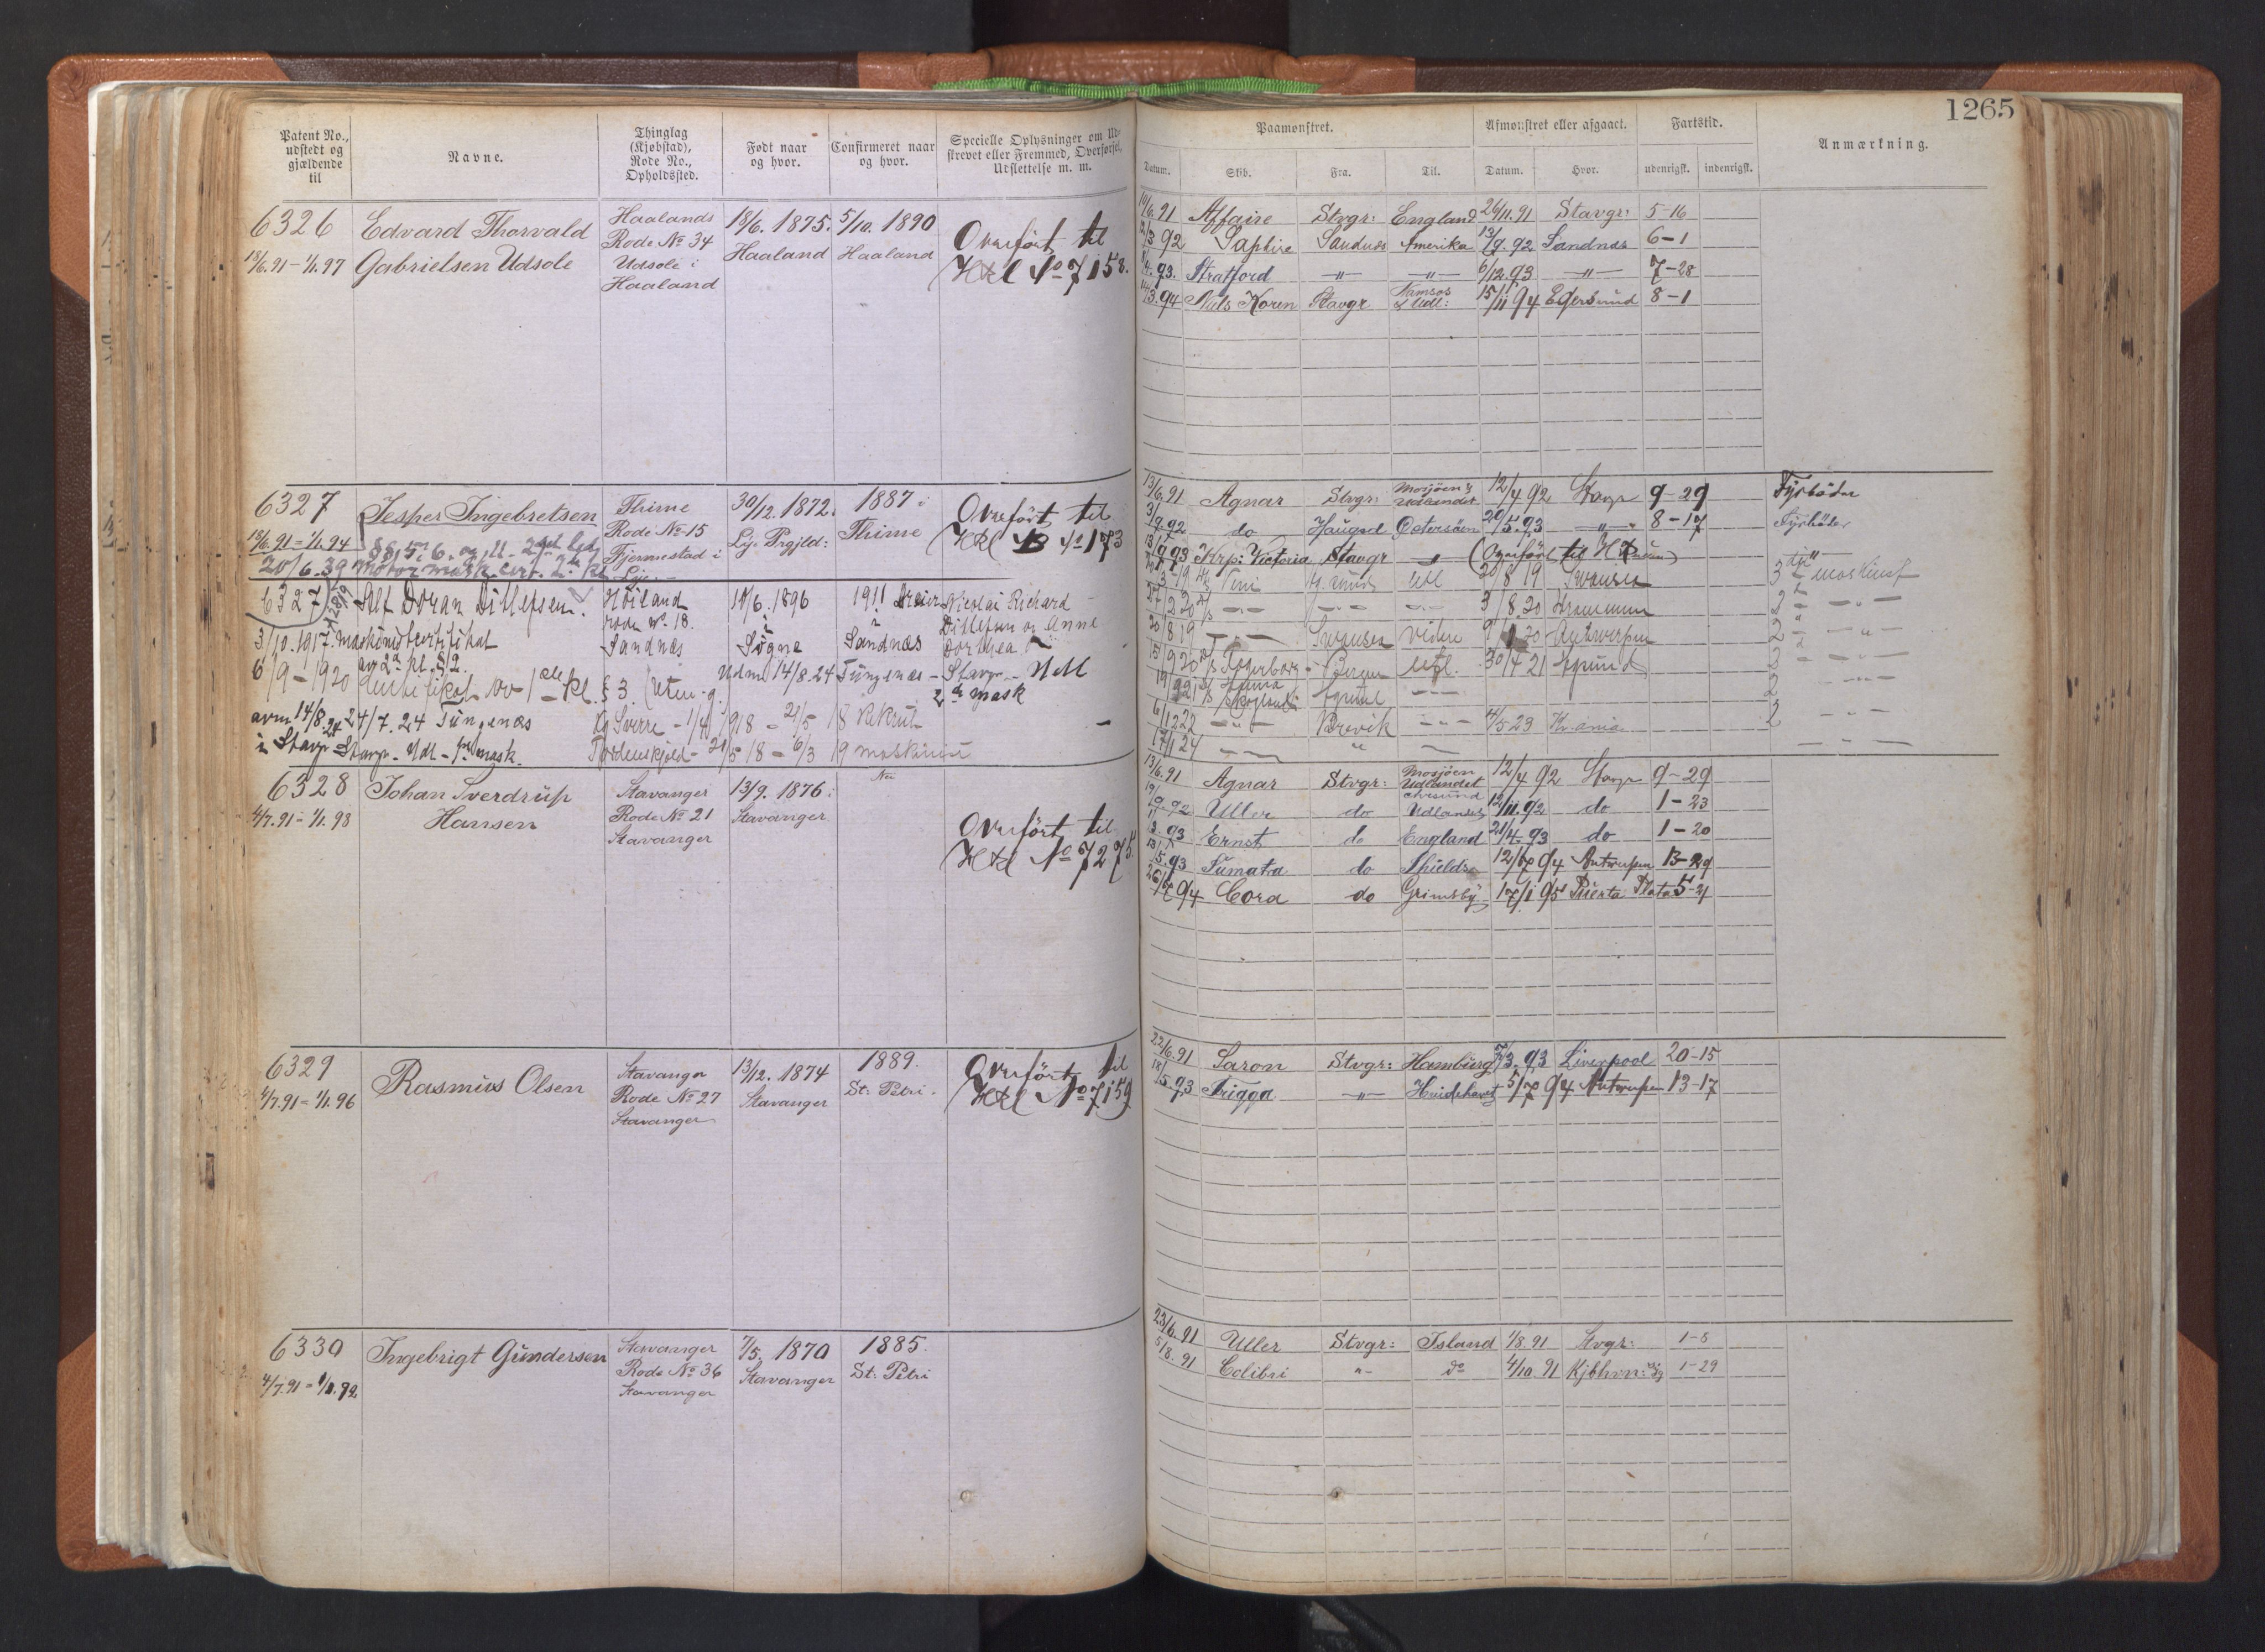 1265
Patent No., udstedt og gjældende til
Navne.
Thinglag (Kjøbstad), Rode No., Opholdssted.
Født naar og hvor.
Confirmeret naar og hvor.
Specielle Oplysninger om Udskrevet eller Fremmed, Overførsel, Udslettelse m. m.
Paamønstret.
Afmønstret eller afgaaet.
Fartstid.
Anmærkning.
Datum. Skib. Fra. Til. Datum. Hvor. udenrigsk. indenrigsk.
6326 Edvard Thorvald Haalands 18/6. 1875. 5/10. 1890 Overført til
13/6.91 - 1/1.97 Gabrielsen Udsole Rode No 34 Haaland Haaland Htl No 7158.
Udsole i
Haaland
10/6.91 Affaire Stvgr: England 26/11.91 Stavgr: 5-16
12/3 92 Saphire Sandnæs Amerika 13/9.92 Sandnæs 6-1
4.93. Stratford -"- -"- 6/12.93 -"- 7-28
3.94 Niels Koren Stavgr Namsos & Udl: 15/11 94 Egersund 8-1
6327 Jesper Ingebretsen Thime 30/12. 1872. 1887 i Overført til
13/6.91 - 1/1.94 Rode No 15 Lye Prgjld: Thime Htl B No 173
Fjermestad i
Lye.
20/6.39 Motormask. cert. 2. kl
13/6.91 Agnar Stvgr: Mosjøen & Udlandet 12/4 92 Stavgr 9-29 Fyrbøder
3/9.92 do Haugsd Østersøen 20/5.93 -"- 8-17 Fyrbøder
13/9 93 Krp: Victoria Stavgr " (Overført til H
6327 Alf Doran Ditlefsen. Høiland 10/6. 1896 1911 Nicolai Richard
rode No. 18. i i Ditlefsen og Anne
3/10.1917. Maskinistcertifikat Sandnæs Sogne Sandnæs Dorthea
av 2a kl. § 2.
6/9-1920 Certifikat 1 kl. § 3. Udm 14/8.24 Tungenæs - Stavgr - Udl
2 mask
avm 14/8.24 24/7.24 Tungenæs Kg Sverre - 1/4 1918 - 21/5 18 Rekrut
i Stavgr Stavgr - Udl - mask. Tordenskjold - 21/5 18 - 6/3 19 maskinist
20/8 19 Swansea 3 maskinist
3/8.20 Drammen 2
20/8 19 Swansea videre 9/1 20 Antwerpen 2
15/9 20 Bergen Utl. 30/4 21 Egersund 2
6/12 22 Brevik 4/5 23 Kr.ania 2
17/1 24
6328 Johan Sverdrup Stavanger 13/9. 1876. Overført til
4/7.91 - 1/1.98 Hansen Rode No 21 Stavanger Htl No 7275.
Stavanger
13/6.91 Agnar Stvgr: Mosjøen Udlandet 12/4 92 Stavgr 9-29
19/9.92 Uller do Udlandet 12/11.92 do 1-23
3.93 Ernst do England 21/4.93 do 1-20
5.93 Sumatra do Shields 12/7 94 Antwerpen 13-29
26/7 94 Cora do Grimsby 17/1 95 Puerta Plata 5-21
6329 Rasmus Olsen Stavanger 13/12. 1874 1889. Overført til
4/7.91 - 1/1.96 Rode No 27 Stavanger St: Petri. Htl No 7159
Stavanger
22/6.91 Saron Stvgr: Hamburg 7/3.93 Liverpool 20-15
18/5.93 Frigga -"- Hvidehavet 5/7 94 Antwerpen 13-17
6330 Ingebrigt Gundersen Stavanger 7/5. 1870 1885.
4/7.91 - 1/1.92 Rode No 36 Stavanger St: Petri
Stavanger
23/6.91 Uller Stvgr: Island 1/8.91 Stvgr: 1-8
5/8.91 Colibri " do 4/10.91 Kjbhvn: 1-29